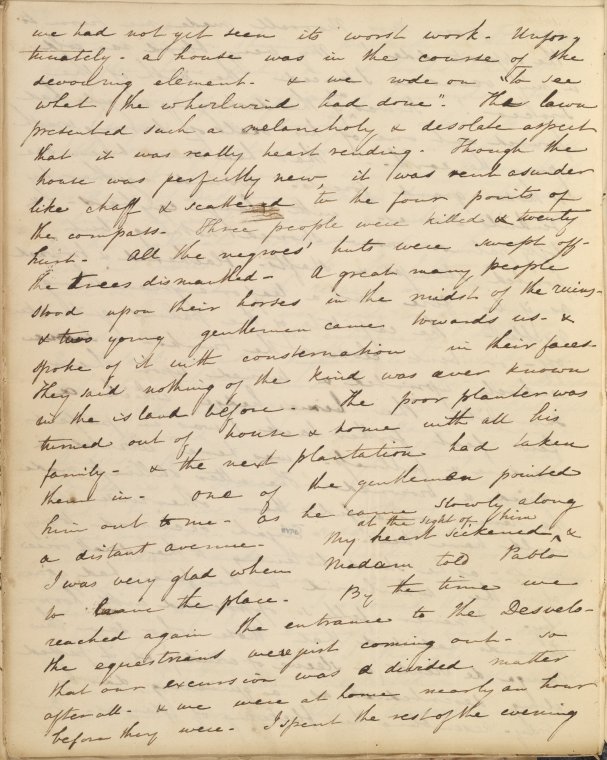 we had not yet seen its worst work - Unfor-
tunately - a house was in the course of the
devouring element - & we rode on "to see
what the whirlwind had done". The lawn
presented such a melancholy & desolate aspect
that it was really heart rending. Though the
house was perfectly new, it was rent asunder
like chaff & scattered to the four points of
the compass - Three people were killed & twenty
hurt - All the negroes' huts were swept off -
the trees dismantled - A great many people
stood upon their horses in the midst of the ruins -
& two young gentlemen came towards us - &
spoke of it with consternation in their faces -
they said nothing of the kind was ever known
in the island before - The poor planter was
turned out of house & home with all his
family - & the next plantation had taken
them in - One of the gentlemen pointed
him out to me - as he came slowly along
a distant avenue - My heart sickened &
at the sight of him
I was very glad when Madam told Pablo
to leave the place - By the time we
reached again the entrance to the Desvelo -
the equestrians were just coming out - so
that our excursion was a divided matter
after all - & we were at home nearly an hour
before they were - I spent the rest of the evening